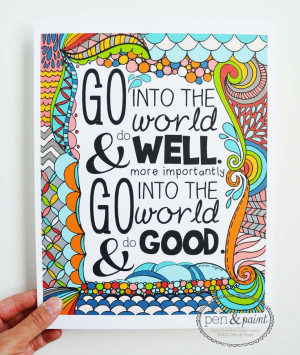 GO INTO THE
world
& do WELL.
more importantly
GO INTO THE
world
& do GOOD.
pen & paint